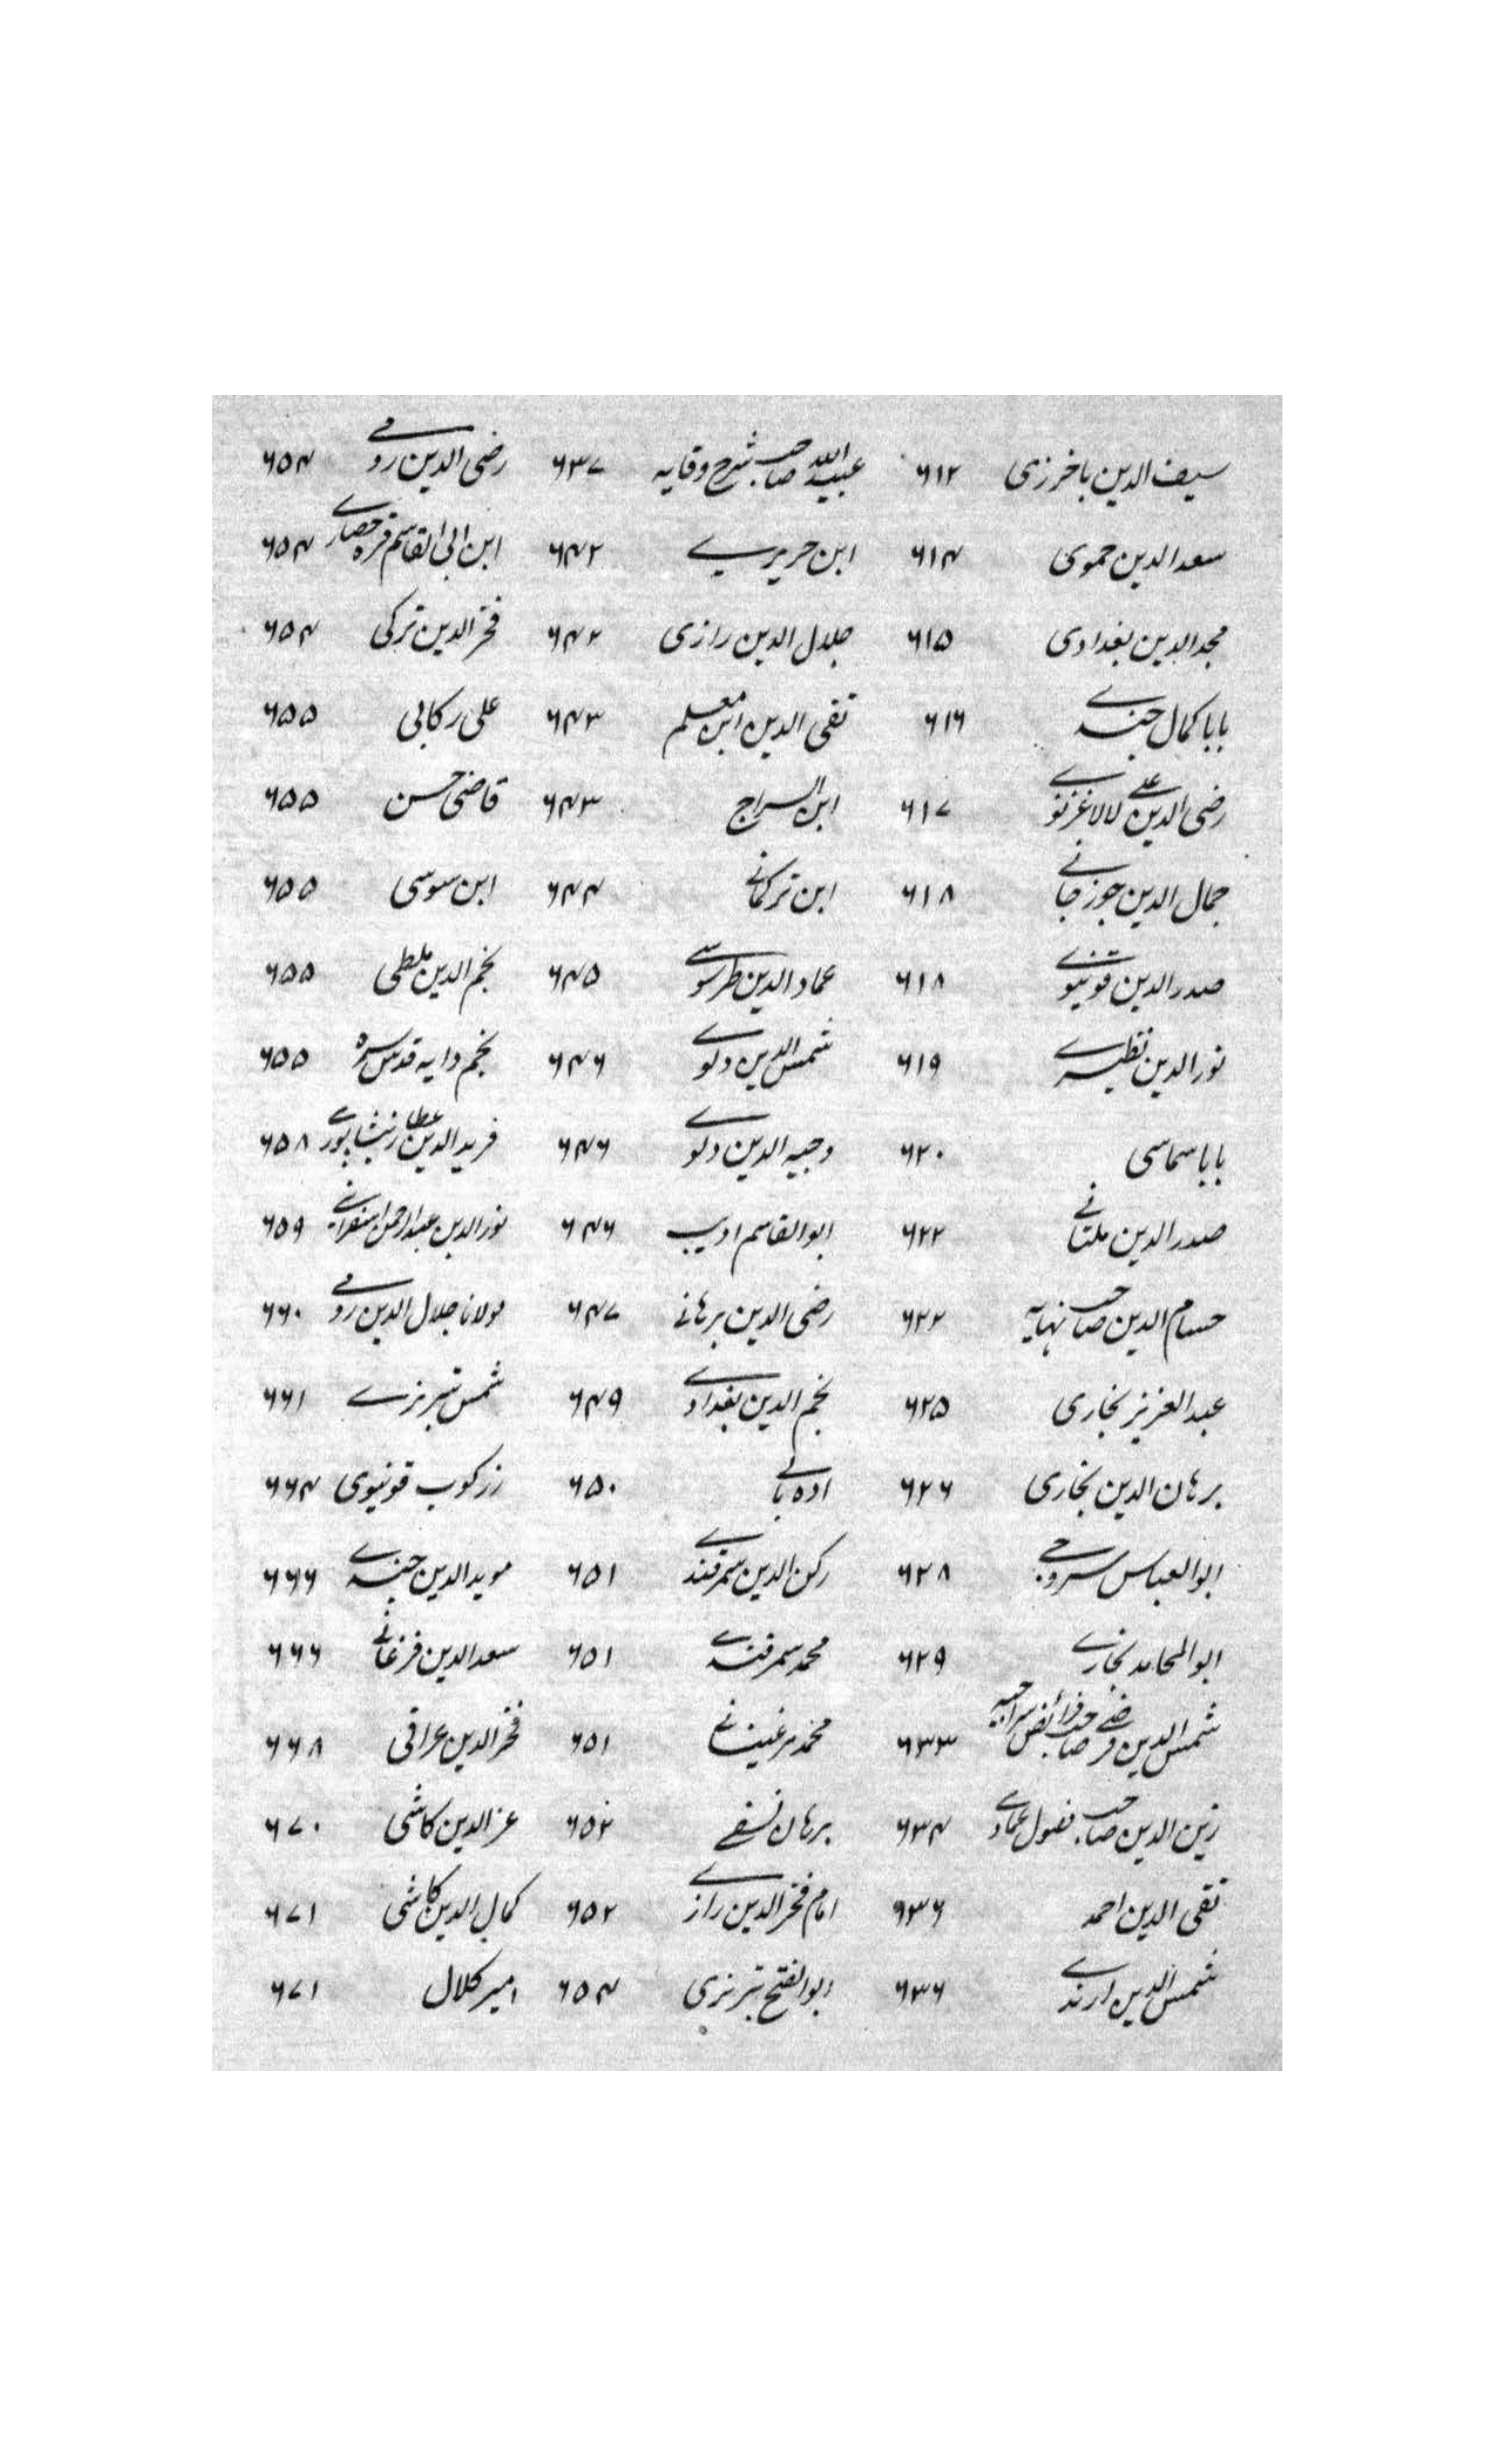 سیف الدین باخرزی ۶۱۲ عبید الله صاحب شرح وقایه ۶۳۷ رضی الدین رومی ۶۵۴
سعد الدین حموی ۶۱۴ ابن حریری ۶۴۲ ابن ابی القاسم قره حصاری ۶۵۴
مجد الدین بغدادی ۶۱۵ جلال الدین رازی ۶۴۲ فخر الدین ترکی ۶۵۴
بابا کمال جندی ۶۱۶ تقی الدین ابن معلم ۶۴۳ علی رکابی ۶۵۵
رضی الدین علی لالا غزنوی ۶۱۷ ابن السراج ۶۴۳ قاضی حسن ۶۵۵
جمال الدین جوزجانی ۶۱۸ ابن ترکمانی ۶۴۴ ابن سوسی ۶۵۵
صدر الدین قونیوی ۶۱۸ عماد الدین طرسوسی ۶۴۵ نجم الدین ملطی ۶۵۵
نور الدین نطنزی ۶۱۹ شمس الدین دلوی ۶۴۶ نجم دایه قدس سره ۶۵۵
بابا سماسی ۶۲۰ وجیه الدین دلوی ۶۴۶ فرید الدین عطار نیشاپوری ۶۵۸
صدر الدین ملتانی ۶۲۲ ابو القاسم ادیب ۶۴۶ نور الدین عبد الرحمن اسفراینی ۶۵۹
حسام الدین صاحب نهایه ۶۲۲ رضی الدین برهانی ۶۴۷ مولانا جلال الدین رومی ۶۶۰
عبد العزیز بخاری ۶۲۵ نجم الدین بغدادی ۶۴۹ شمس تبریزی ۶۶۱
برهان الدین بخاری ۶۲۶ اده بالی ۶۵۰ زرکوب قونیوی ۶۶۴
ابو العباس سروجی ۶۲۸ رکن الدین سمرقندی ۶۵۱ موید الدین جندی ۶۶۶
ابو المحامد بخاری ۶۲۹ محمد سمرقندی ۶۵۱ سعد الدین فرغانی ۶۶۶
شمس الدین فرضی صاحب فرائض سراجیه ۶۳۳ محمد مرغینانی ۶۵۱ فخر الدین عراقی ۶۶۸
زین الدین صاحب فصول عمادی ۶۳۴ برهان نسفی ۶۵۲ عز الدین کاشی ۶۷۰
تقی الدین احمد ۶۳۶ امام فخر الدین رازی ۶۵۲ کمال الدین کاشی ۶۷۱
شمس الدین ارندی ۶۳۶ ابو الفتح تبریزی ۶۵۴ امیر کلال ۶۷۱